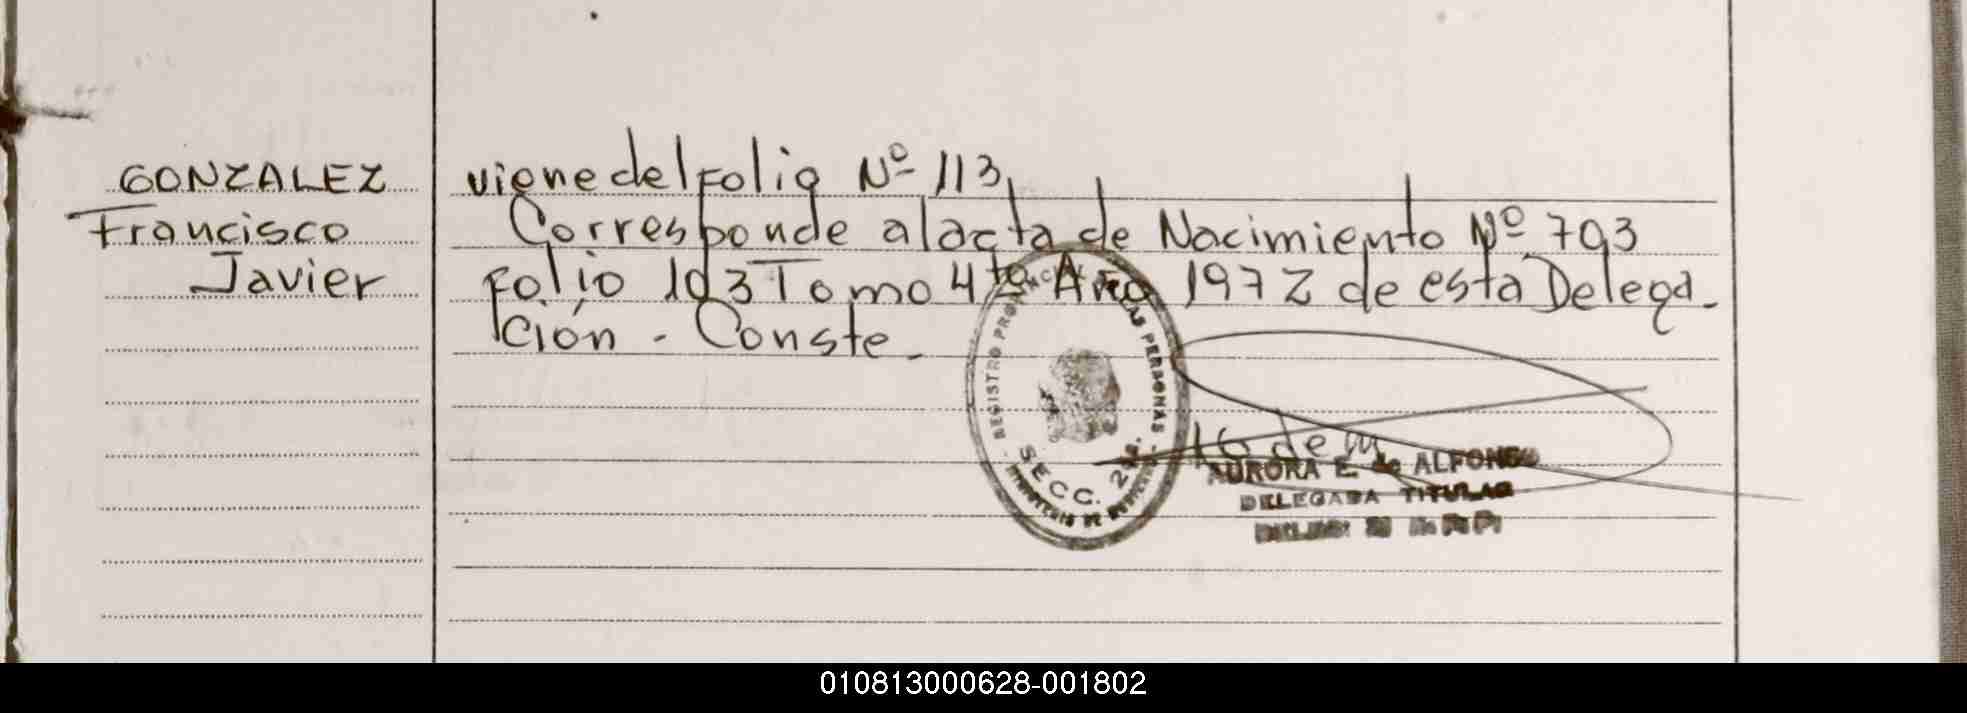 GONZALEZ
Francisco
Javier
viene del Folio Nº 113
Corresponde al acta de Nacimiento Nº 793
Folio 193 Tomo 4to Año 1972 de esta Delega-
ción - Conste -
REGISTRO PERSONAS
SECC.
16 de
AURORA E. de ALFONSO
DELEGADA TITULAR
010813000628-001802